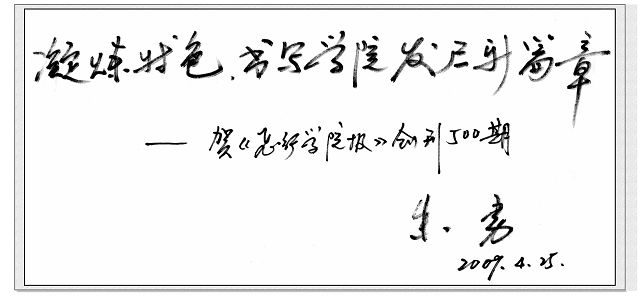 凝炼特色,书写学院发展新篇章
——贺《飞行学院报》创刊500期
朱勇
2009.4.25.